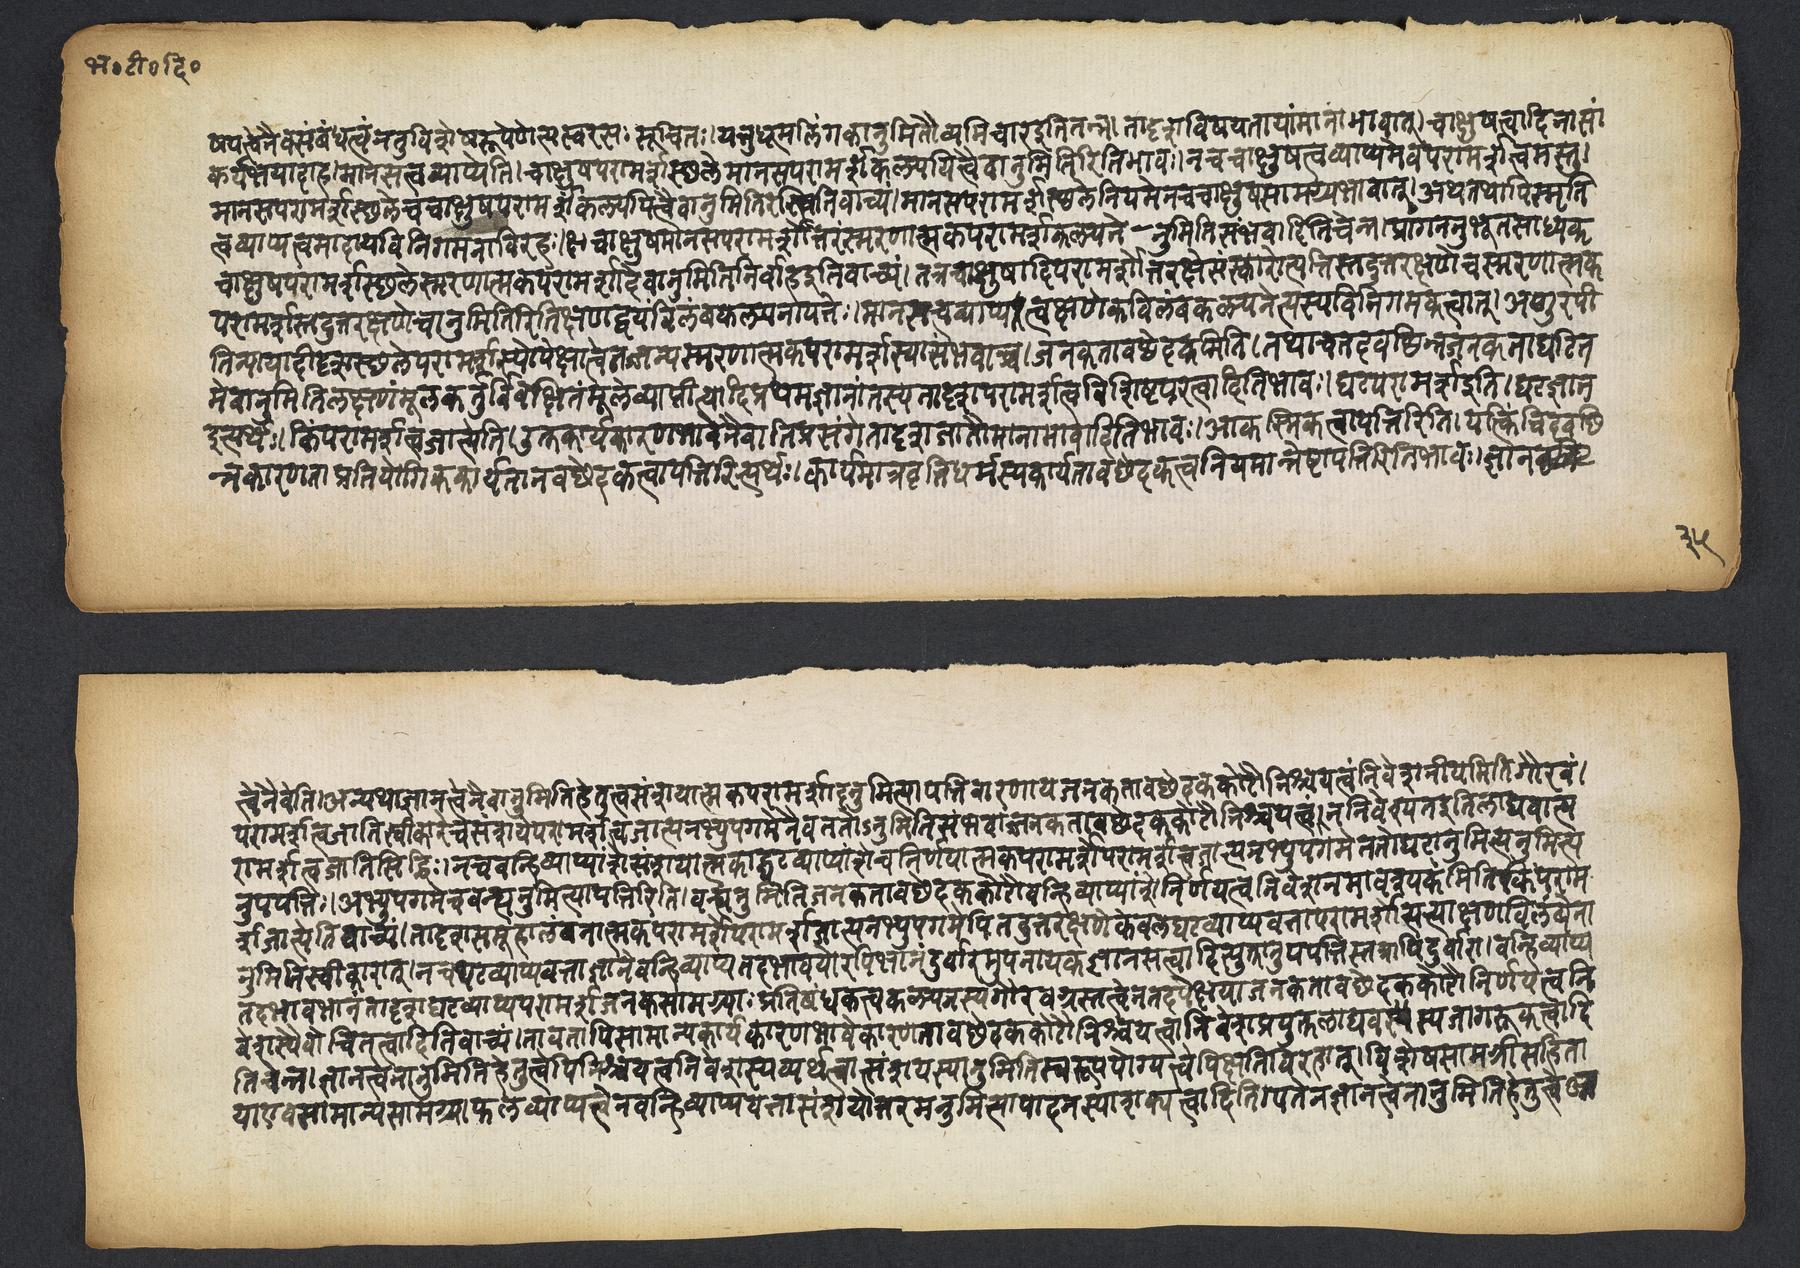 भ॰टी॰दि॰
षयत्वेनैकसंबंधत्वं नतु विशेषरूपेणेत्यस्वरसः सूचितः। यत्तु धूमलिंगकानुमितौ व्यभिचार इति तन्न। तादृशविषयतायां मानाभावात्। चाक्षुषत्वादिनासां
कर्यभियादाह। मानसत्वव्याप्येति। चाक्षुषपरामर्शस्थले मानसपरामर्शं कल्पयित्वैवानुमितिरितिभावः। नच चाक्षुषत्वव्याप्यमेव परामर्शत्वमस्तु।
मानसपरामर्शस्थले च चाक्षुषपरामर्शं कल्पयित्वैवानुमितिरस्त्वितिवाच्यं। मानसपरामर्शस्थले नियमेन च चाक्षुषसामग्र्यभावात्। अथ तथापि स्मृति
त्वव्याप्यत्वमादाय विनिगमनाविरहः। चाक्षुषमानसपरामर्शोत्तरं स्मरणात्मकपरामर्शकल्पने नुमितिसंभवादितिचेन्न। प्रागननुभूतसाध्यक
चाक्षुषपरामर्शस्थले स्मरणात्मकपरामर्शादेवानुमितिनिर्वाह इतिवाच्यं। तत्र चाक्षुषादिपरामर्शोत्तरक्षणे संस्कारोत्पत्तिस्तदुत्तरक्षणे च स्मरणात्मक
परामर्शस्तदुत्तरक्षणे चानुमितिरिति क्षणद्वयविलंबकल्पनापत्तेः। मानसत्वव्याप्यत्वे क्षणैकविलंबकल्पनेत्यस्य विनिगमकत्वात्। अणुरपी
तिन्यायादीदृशस्थले परामर्शस्यापेक्षात्वेतज्जन्य स्मरणात्मकपरामर्शस्यासंभवाच्च। जनकतावच्छेदकमिति। तथाच तदवच्छिन्नजनकताघटित
मेवानुमितिलक्षणं मूलकर्तुर्विवक्षितं मूले व्याप्तीत्यादि प्रथमज्ञानांतस्य तादृशपरामर्शत्वविशिष्टपरत्वादितिभावः। घटपरामर्श इति। घटज्ञान
इत्यर्थः। किं परामर्शत्वजात्येति। उक्तकार्यकारणभावेनैवातिप्रसंगे तादृशजातौ मानाभावादितिभावः। आकस्मिकत्वापत्तिरिति। यत्किंचिदवच्छि
न्नकारणताप्रतियोगिककार्यतानवच्छेदकत्वापत्तिरित्यर्थः। कार्यमात्रवृत्तिधर्मस्य कार्यतावच्छेदकत्वनियमान्नेष्टापत्तिरितिभावः। ज्ञान
३५
त्वेनैवेति। अन्यथा ज्ञानत्वेनैवानुमितिहेतुत्वे संशयात्मकपरामर्शादनुमित्यापत्तिवारणाय जनकतावच्छेदककोटौ निश्चयत्वं निवेशनीयमिति गौरवं।
परामर्शत्वजातिस्वीकारे च संशये परामर्शत्वजात्यनभ्युपगमेनैव ततो ऽनुमितिसंभवाज्जनकतावच्छेदककोटौ निश्चयत्वं न निवेश्यत इति लाघवात्प
रामर्शत्वजातिसिद्धिः। नच वन्हिव्याप्यांशे संशयात्मकाद्घटव्याप्यांशे च निर्णयात्मकपरामर्शे परामर्शत्वजात्यनभ्युपगमे ततो घटानुमित्यनुमित्य
नुपपत्तिः। अभ्युपगमे च वन्ह्यनुमित्यापत्तिरिति। वन्ह्यनुमितिजनकतावच्छेदककोटौ वन्हिव्याप्यांशे निर्णयत्वनिवेशनमावश्यकमिति किं पराम
र्शजात्येति वाच्यं। तादृशसमूहालंबनात्मकपरामर्शे परामर्शजात्यनभ्युपगमेपि तदुत्तरक्षणे केवलघटव्याप्यवत्तापरामर्शोत्पत्त्या क्षणविलंबेना
नुमितिस्वीकारात्। नच घटव्याप्यवत्ताज्ञाने वन्हिव्याप्य तदभावयोरपि भानं दुर्वारमुपनायकज्ञानसत्वादित्युक्तानुपपत्तिस्तत्रापि दुर्वारा। वन्हिव्याप्य
तदभावभाने तादृशघटव्याप्यपरामर्शजनकसामग्र्याः प्रतिबंधकत्वकल्पनस्य गौरवग्रस्तत्वेन तदपेक्षया जनकतावच्छेदककोटौ निर्णयत्वनि
वेशस्यैवोचितत्वादितिवाच्यं। तावतापि सामान्यकार्यकारणभावे कारणतावच्छेदककोटौ निश्चयत्वानिवेशप्रयुक्तलाघवस्य जागरूकत्वादि
तिचेन्न। ज्ञानत्वेनानुमितिहेतुत्वेपि निश्चयत्वनिवेशस्य व्यर्थत्वात्संशयस्यानुमितिस्वरूपयोग्यत्वेपि क्षतिविरहात्। विशेषसामग्रीसहिता
या एव सामान्यसामग्र्याः फलव्याप्यत्वेन वन्हिव्याप्यवत्तासंशयोत्तरमनुमित्यापादनस्याशक्यत्वादिति। एतेन ज्ञानत्वेनानुमितिहेतुत्वे